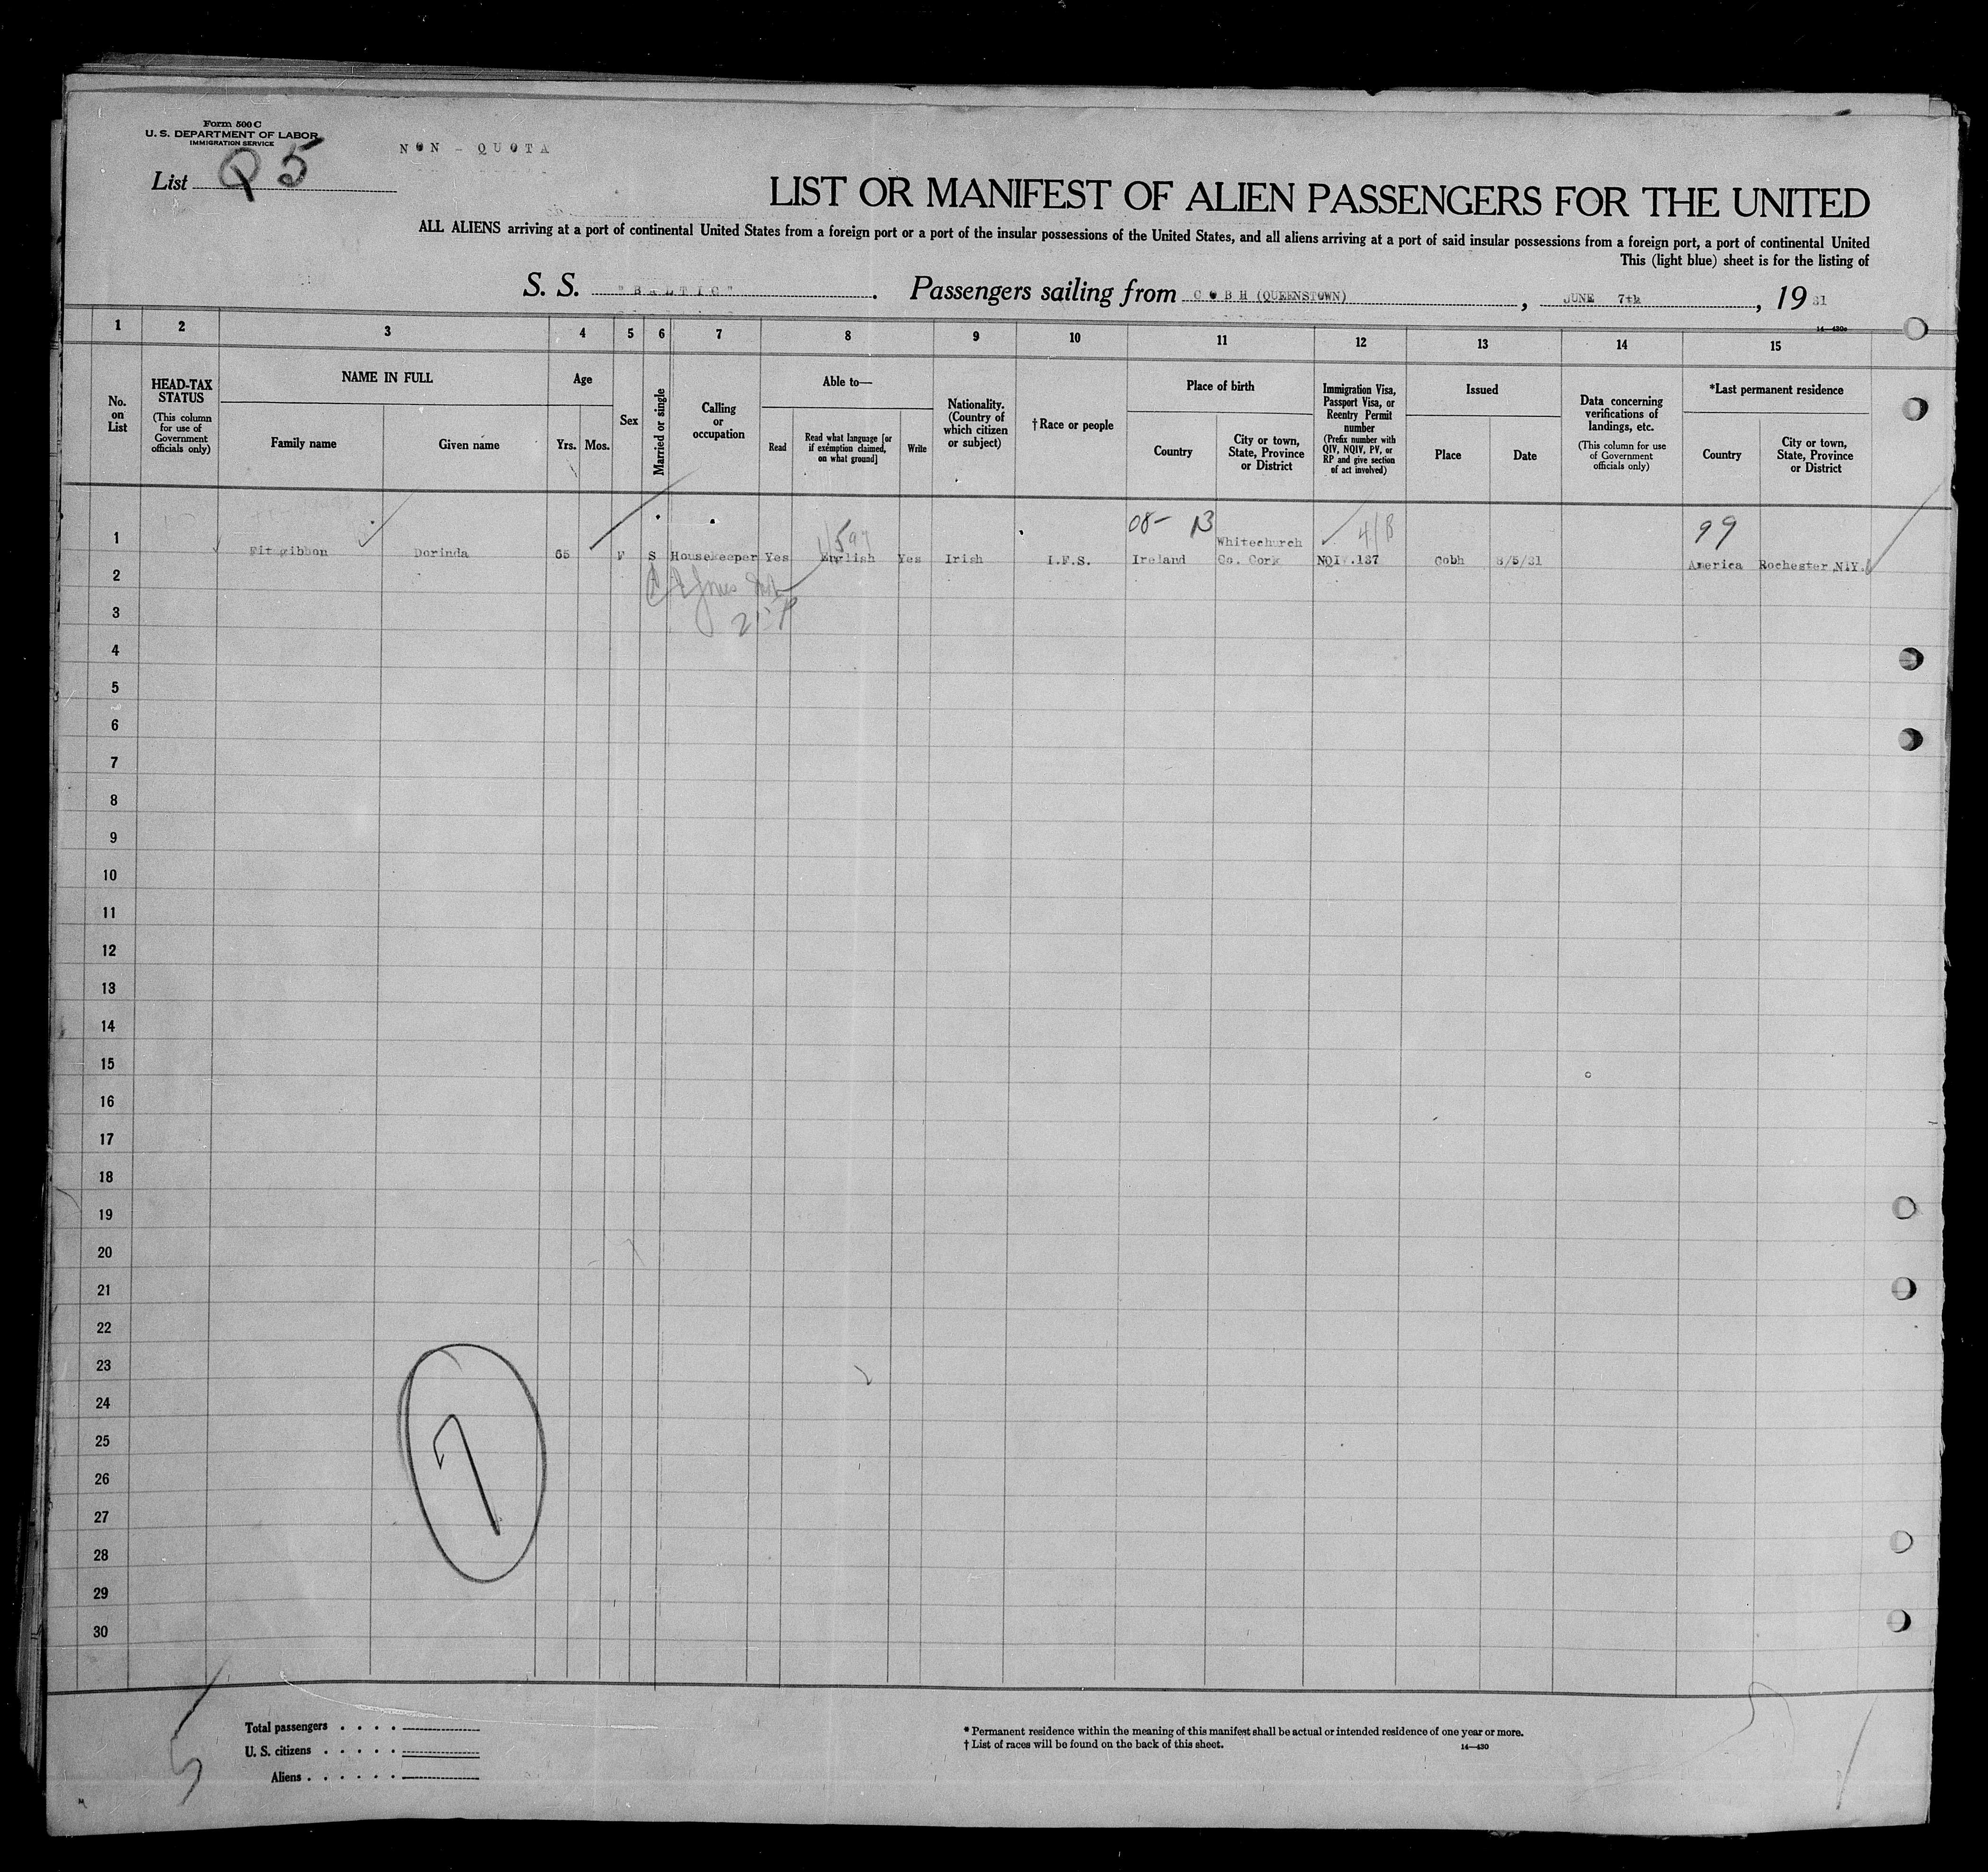 Form 500 C
U. S. DEPARTMENT OF LABOR
IMMIGRATION SERVICE
NON - QUOTA
List Q 5
LIST OR MANIFEST OF ALIEN PASSENGERS FOR THE UNITED
ALL ALIENS arriving at a port of continental United States from a foreign port or a port of the insular possessions of the United States, and all aliens arriving at a port of said insular possessions from a foreign port, a port of continental United
This (light blue) sheet is for the listing of
S. S. "BALTIC". Passengers sailing from COBH (QUEENSTOWN), JUNE 7th, 19 31
14—430a
1 2 3 4 5 6 7 8 9 10 11 12 13 14 15
No. on List
HEAD-TAX STATUS
(This column for use of Government officials only)
NAME IN FULL
Family name
Given name
Age
Yrs. Mos.
Sex
Married or single
Calling or occupation
Able to—
Read
Read what language [or if exemption claimed, on what ground]
Write
Nationality. (Country of which citizen or subject)
†Race or people
Place of birth
Country
City or town, State, Province or District
Immigration Visa, Passport Visa, or Reentry Permit number
(Prefix number with QIV, NQIV, PV, or RP and give section of act involved)
Issued
Place
Date
Data concerning verifications of landings, etc.
(This column for use of Government officials only)
*Last permanent residence
Country
City or town, State, Province or District
08- 13 4/8 99
1 Fitzgibbon Dorinda 65 F S Housekeeper Yes English Yes Irish I.F.S. Ireland Whitechurch Co. Cork NQIV.137 Cobh 8/5/31 America Rochester N.Y.
2
3
4
5
6
7
8
9
10
11
12
13
14
15
16
17
18
19
20
21
22
23
24
25
26
27
28
29
30
Total passengers . . . .
U. S. citizens . . . . .
Aliens . . . . . .
* Permanent residence within the meaning of this manifest shall be actual or intended residence of one year or more.
† List of races will be found on the back of this sheet.
14—430